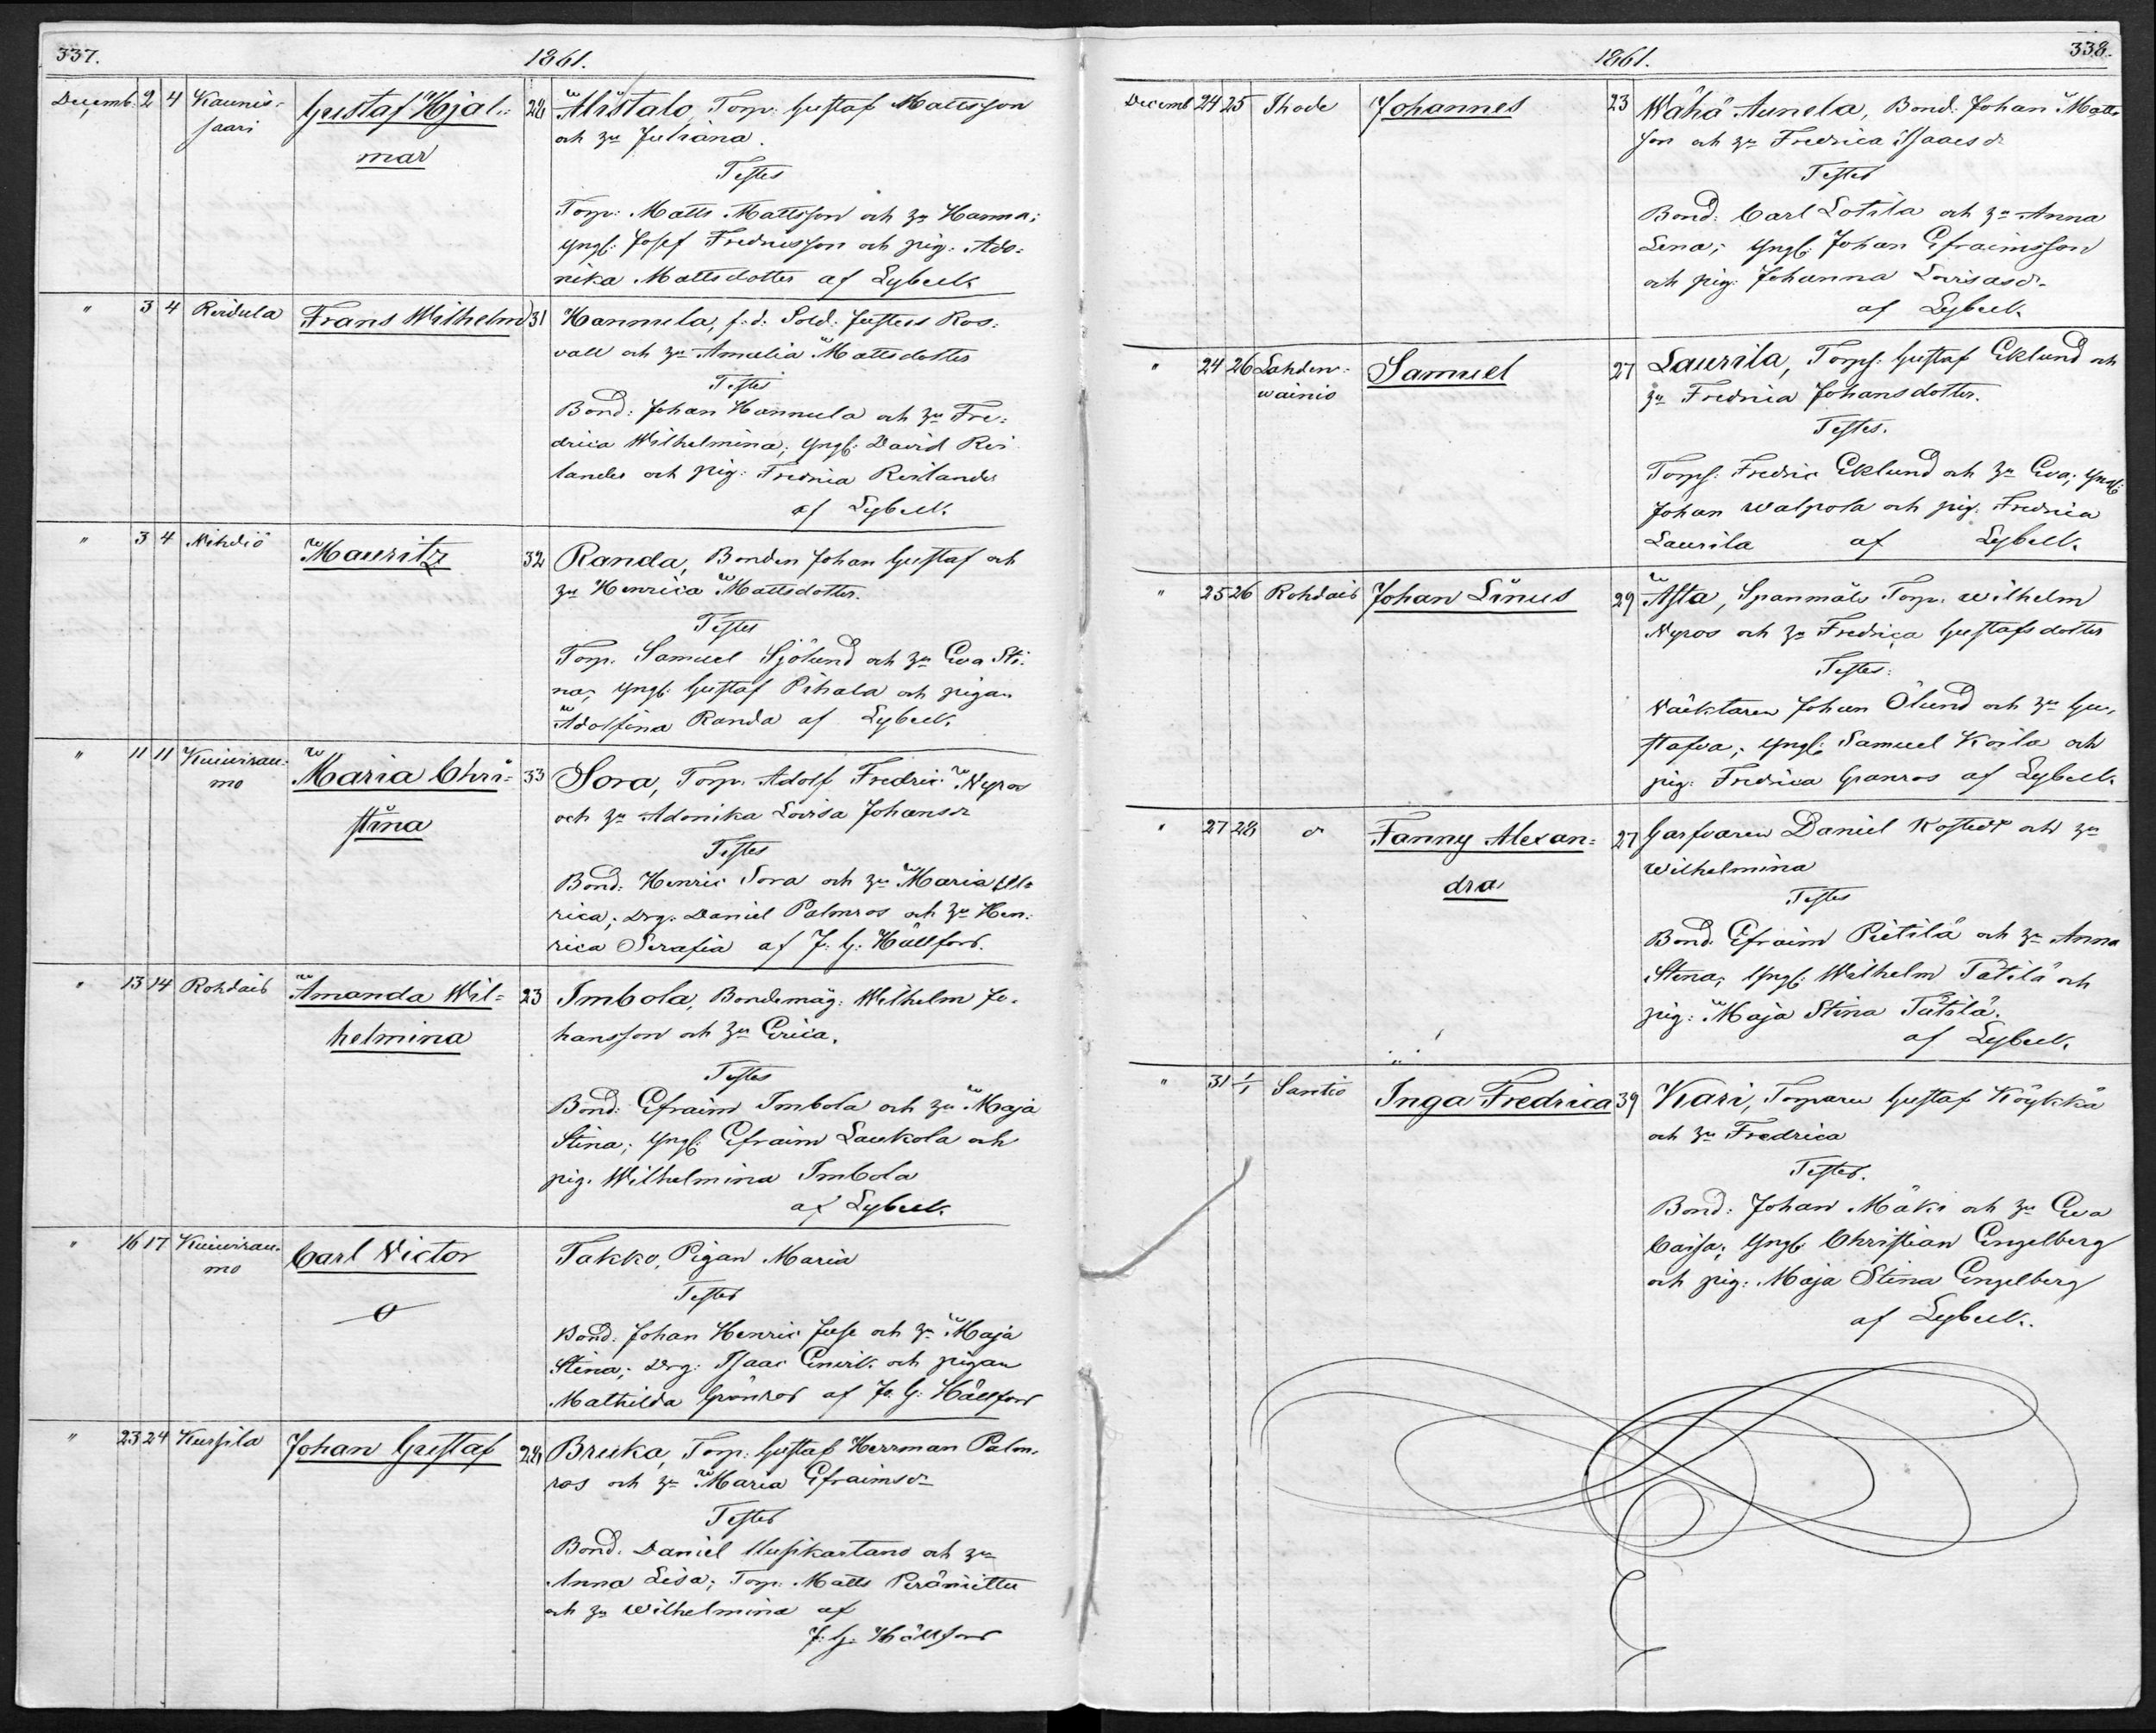 337. 1861.
Decemb. 2 4 Kaunis-
saari
Gustaf Hjal-
mar
28 Alistalo, Torp: Gustaf Mattsson
och hu Juliana.
Testes
Torp: Matts Mattsson och hu Hanna;
yngl: Josef Fredricsson och pig: Ado-
nika Mattsdotter af Lybeck.
" 3 4 Reidula Frans Wilhelm 31 Hannula, f.d. Sold: Ros-
vall och hu Amalia Mattsdotter
Testes
Bond: Johan Hannula och hu Fre-
drica Wilhelmina; yngl: David Rei-
lander och pig: Fredrica Reilander
af Lybeck.
" 3 4 Nihdiö Mauritz 32 Randa, Bonden Johan Gustaf och
hu Henrica Mattsdotter.
Testes
Torp. Samuel Sjölund och hu Eva Sti-
na; yngl: Gustaf Pihala och pigan
Adolfina Randa af Lybeck.
" 11 11 Kuiwirau-
mo
Maria Chri-
stina
33 Sora, Torp. Adolf Fredric Nyros
och hu Adonika Lovisa Johansdr
Testes
Bond: Henric Sora och hu Maria Ul-
rica; Drg: Daniel Palmros och hu Hen-
rica Serafia af J. G. Hällfors.
" 13 14 Rohdais Amanda Wil-
helmina
23 Imbola, Bondemåg: Wilhelm Jo-
hansson och hu Erica.
Testes
Bond: Efraim Imbola och hu Maja
Stina; yngl: Efraim Laukola och
pig. Wilhelmina Imbola
af Lybeck.
" 16 17 Kuiwirau-
mo
Carl Victor
Takko, Pigan Maria
Testes
Bond: Johan Henric Juse och hu Maja
Stina; Drg: Isaac och pigan
Mathilda Grönros af J. G. Hällfors
" 23 24 Kursila Johan Gustaf 28 Bruka, Torp: Gustaf Herrman Palm-
ros och hu Maria Efraimsdr
Testes
Bond. Daniel Uusikartano och hu
Anna Lisa; Torp. Matts Peräniittu
och hu Wilhelmina af
J. G. Hällfors
1861. 338.
Decemb 24 25 Ihode Johannes 23 Wähä Aunela, Bond: Johan Matts-
son och hu Fredrica Isaacsdr
Testes
Bond: Carl Lotila och hu Anna
Lena; yngl: Johan Efraimsson
och pig: Johanna Lovisasdr
af Lybeck.
" 24 26 Lahden-
wainio
Samuel 27 Laurila, Torp: Gustaf Eklund och
hu Fredrica Johansdotter.
Testes.
Torp: Fredric Eklund och hu Eva; yngl:
Johan Walpola och pig: Fredrica
Laurila af Lybeck.
" 25 26 Rohdais Johan Linus 29 Asta, Spanmåls Torp. Wilhelm
Nyros och hu Fredrica Gustafsdotter
Testes:
Wäktaren Johan Ölund och hu Gu-
stafva; yngl: Samuel Koila och
pig: Fredrica Granros af Lybeck.
" 27 28 dr Fanny Alexan-
dra
27 Garfvaren Daniel Rostedt och hu
Wilhelmina
Testes
Bond. Efraim Pietilä och hu Anna
Stina; yngl: Wilhelm Tätilä och
pig: Maja Stina Tätilä.
af Lybeck.
" 31 1/1 Santio Inga Fredrica 39 Kari, Torparen Gustaf Köykkä
och hu Fredrica
Testes.
Bond: Johan Mäki och hu Eva
Caisa; yngl: Christian Engelberg
och pig: Maja Stina Engelberg
af Lybeck.